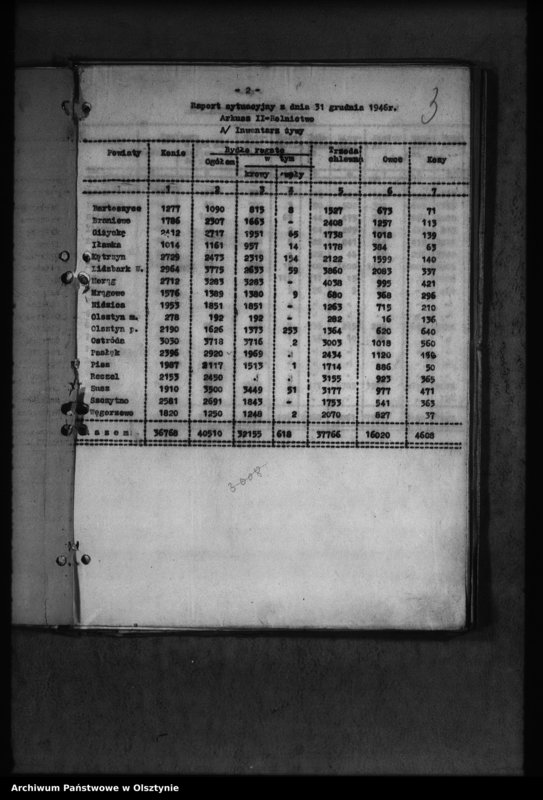 - 2 -
3
Raport sytuacyjny z dnia 31 grudnia 1946r.
Arkusz II-Rolnictwo
A/ Inwentarz żywy
Powiaty Konie Bydło rogate Trzoda chlewna Owce Kozy
Ogółem w tym
krowy woły
1 2 3 4 5 6 7
Bartoszyce 1277 1090 815 8 1527 673 71
Braniewo 1786 2307 1663 - 2408 1257 113
Giżycko 2412 2717 1951 65 1738 1018 139
Iławka 1014 1161 957 14 1178 384 63
Kętrzyn 2729 2473 2319 154 2122 1599 140
Lidzbark W. 2964 3775 2633 59 3860 2083 337
Morąg 2712 3283 3283 - 4038 995 421
Mrągowo 1576 1389 1380 9 680 368 296
Nidzica 1953 1851 1851 - 1263 715 210
Olsztyn m. 278 192 192 - 282 16 136
Olsztyn p. 2190 1626 1373 253 1364 620 640
Ostróda 3030 3718 3716 2 3003 1018 560
Pasłęk 2396 2920 1969 . 2434 1120 156
Pisz 1987 2117 1513 1 1714 886 50
Reszel 2153 2450 . . 3155 923 365
Susz 1910 3500 3449 51 3177 977 471
Szczytno 2581 2691 1843 - 1753 541 363
Węgorzewo 1820 1250 1248 2 2070 827 37
R a z e m: 36768 40510 32155 618 37766 16020 4608
Archiwum Państwowe w Olsztynie